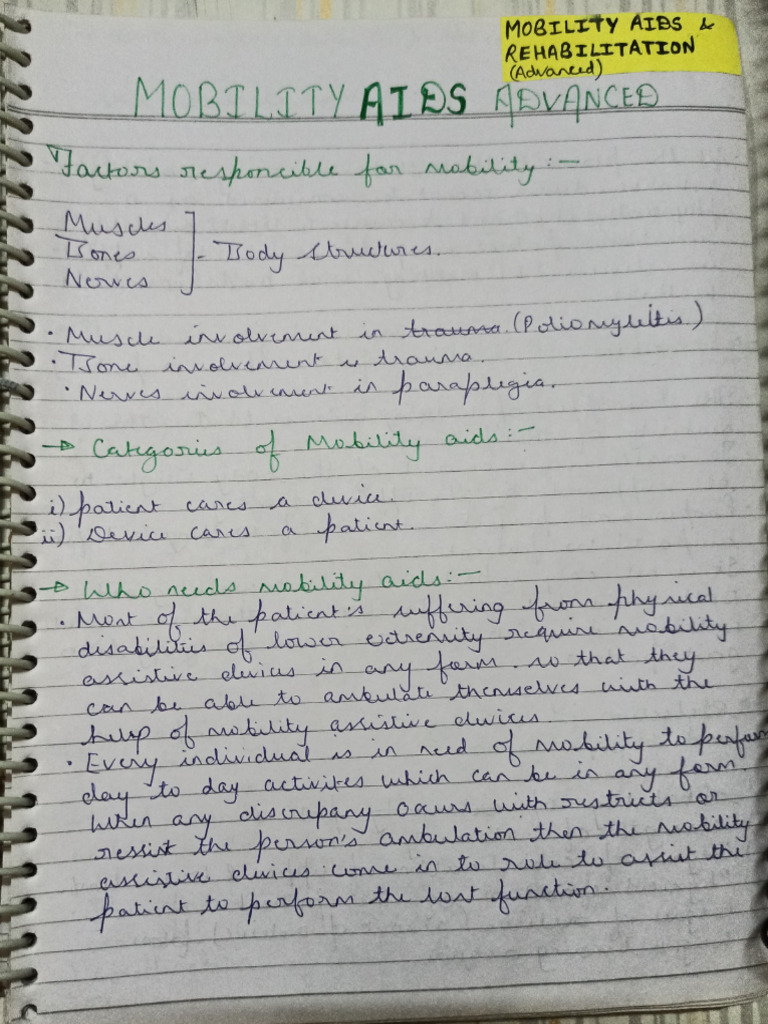 MOBILITY AIDS &
REHABILITATION
(Advanced)
MOBILITY AIDS ADVANCED
Factors responcible for mobility :-
Muscles
Bones
Nerves
- Body structures.
• Muscle involvement in trauma. (Poliomyleitis.)
• Bone involvement is trauma.
• Nerves involvement in paraplegia.
→ Categories of Mobility aids :-
i) patient cares a device.
ii) Device cares a patient.
→ Who needs mobility aids :-
• Most of the patient's suffering from physical
disabilities of lower extremity require mobility
assistive devices in any form. so that they
can be able to ambulate themselves with the
help of mobility assistive devices.
• Every individual is in need of mobility to perform
day to day activites which can be in any form.
When any discrepany ocurs with restricts or
ressist the person's ambulation then the mobility
assistive devices come in to role to assist the
patient to perform the lost function.